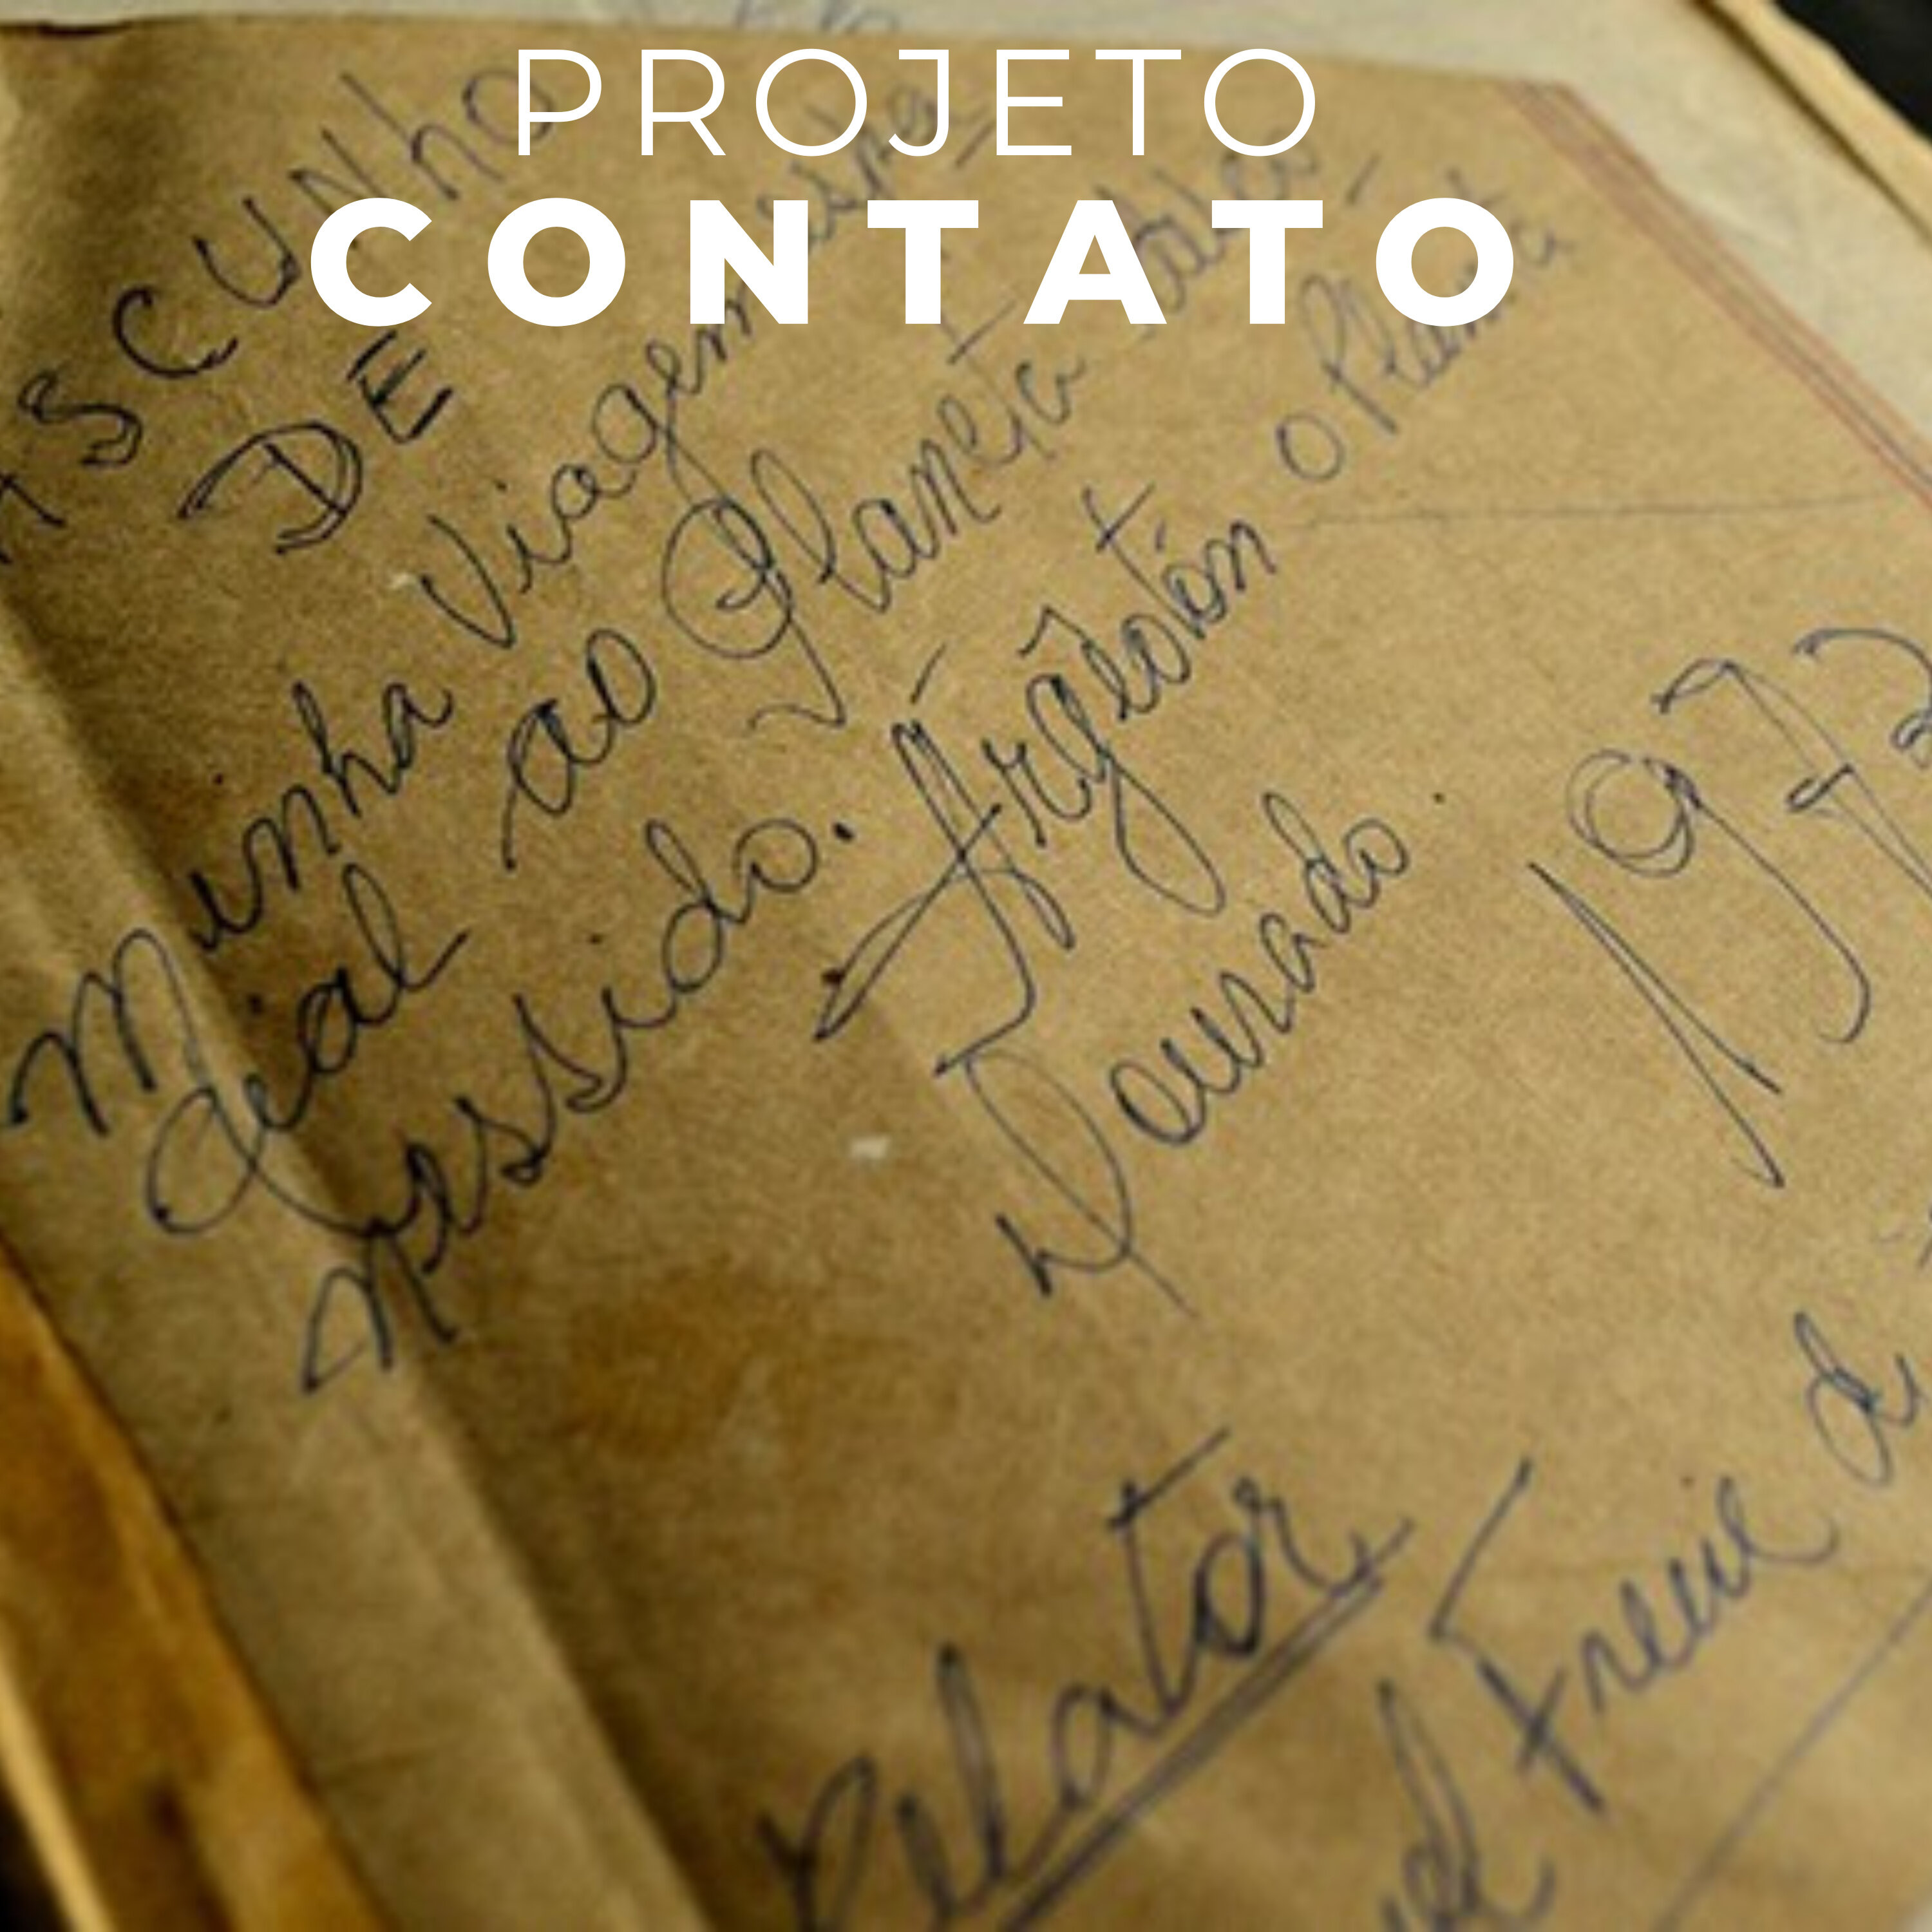 PROJETO
CONTATO
ASCUNHO
DE
Minha Viagem
dial ao Planeta
Messido. Argeotón O Planeta
Dourado.
1973
Relator
Freire de